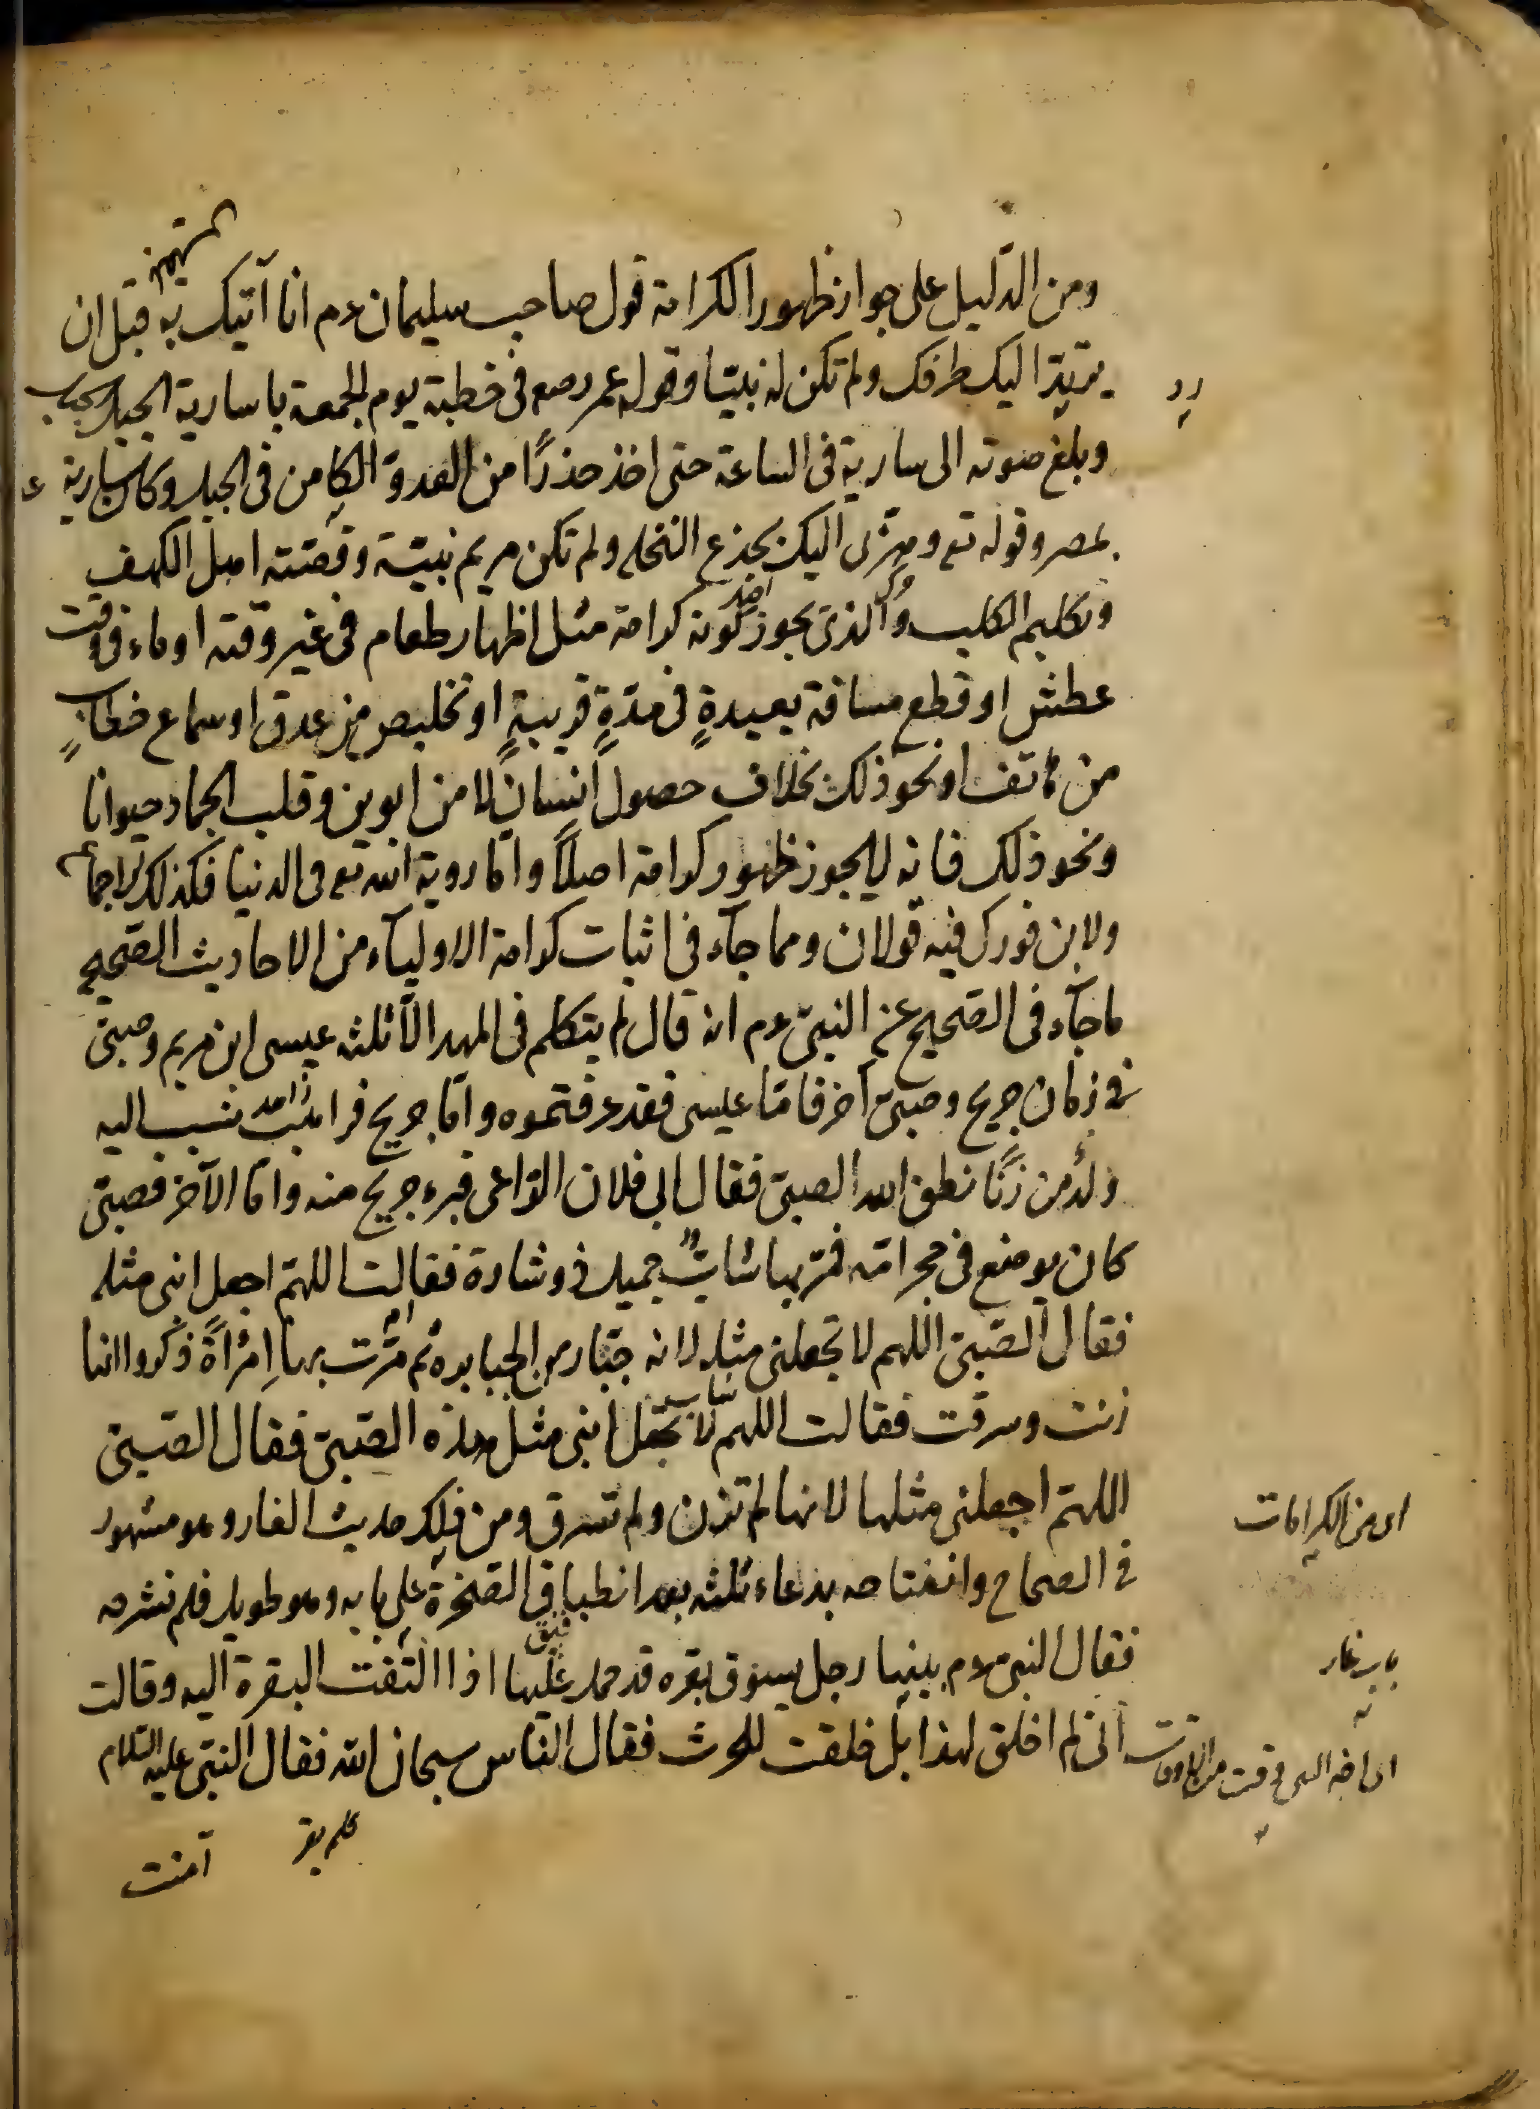 ومن الدّليل على جواز ظهور الكرامة قول صاحب سليمان عم انا آتيك به قبل ان
يرتدّ اليك طرفك ولم تكن له نبيّا وقول عمر رضع فى خطبة يوم الجمعة يا سارية الجبل الجبل
وبلغ صوته الى سارية فى الساعة حتى اخذ حذرًا من العدوّ الكامن فى الجبل وكان سارية
بمصر وقوله تع وهزّى اليك بجذع النخلة ولم تكن مريم نبيّة وقصّته اهل الكهف
وتكليم الكلب والذى يجوز كونه كرامة مثل اظهار طعام فى غير وقته او ماء فى وقت
عطش او قطع مسافة بعيدةٍ فى مدّةٍ قريبةٍ او تخليص من عدوّ او سماع خطابٍ
من هاتف او نحو ذلك بخلاف حصول انسانٍ لا من ابوين وقلب الجماد حيوانا
ونحو ذلك فانه لا يجوز ظهور كرامة اصلاً وامّا روية الله تع فى الدنيا فكذلك
ولابن فورك فيه قولان ومما جآء فى اثبات كرامة الاوليآء من الاحاديث الصحيح
ما جآء فى الصحيح عن النبىّ عم انه قال لم يتكلم فى المهد الّا ثلثه عيسى ابن مريم وصبىّ
فى زمان جريح وصبىّ آخر فامّا عيسى فقد عرفتموه وامّا جريح فراهب نسب اليه
ولدٌ من زنًا نطق الله الصبىّ فقال ابى فلان الرّاعى فبرء جريح منه وامّا الآخر فصبىّ
كان يوضع فى حجر امّه فمرّ بها شابٌّ جميل ذو شارة فقالت اللهمّ اجعل ابنى مثله
فقال الصّبىّ اللهم لا تجعلنى مثله لانه جبّار من الجبابره ثم مرّت بها اِمْرأةً ذكروا انها
زنت وسرقت فقالت اللهمّ لا تجعل ابنى مثل هذه الصّبىّ فقال الصّبىّ
اللهمّ اجعلنى مثلها لانها لم تزن ولم تسرق ومن ذلك حديث الغار وهو مشهور
اى من الكرامات
فى الصحاح وانفتاحه بدعاء ثلثه بعد انطباق الصّخرة على بابه وهو طويل فلم نشرحه
فقال النبى عم بينما رجل يسوق بقره قد حمل عليها اذا التفت البقرة اليه وقالت
انى لم اخلق لهذا بل خلقت للحرث فقال النّاس سبحان الله فقال النبىّ عليه السّلام
آمنت